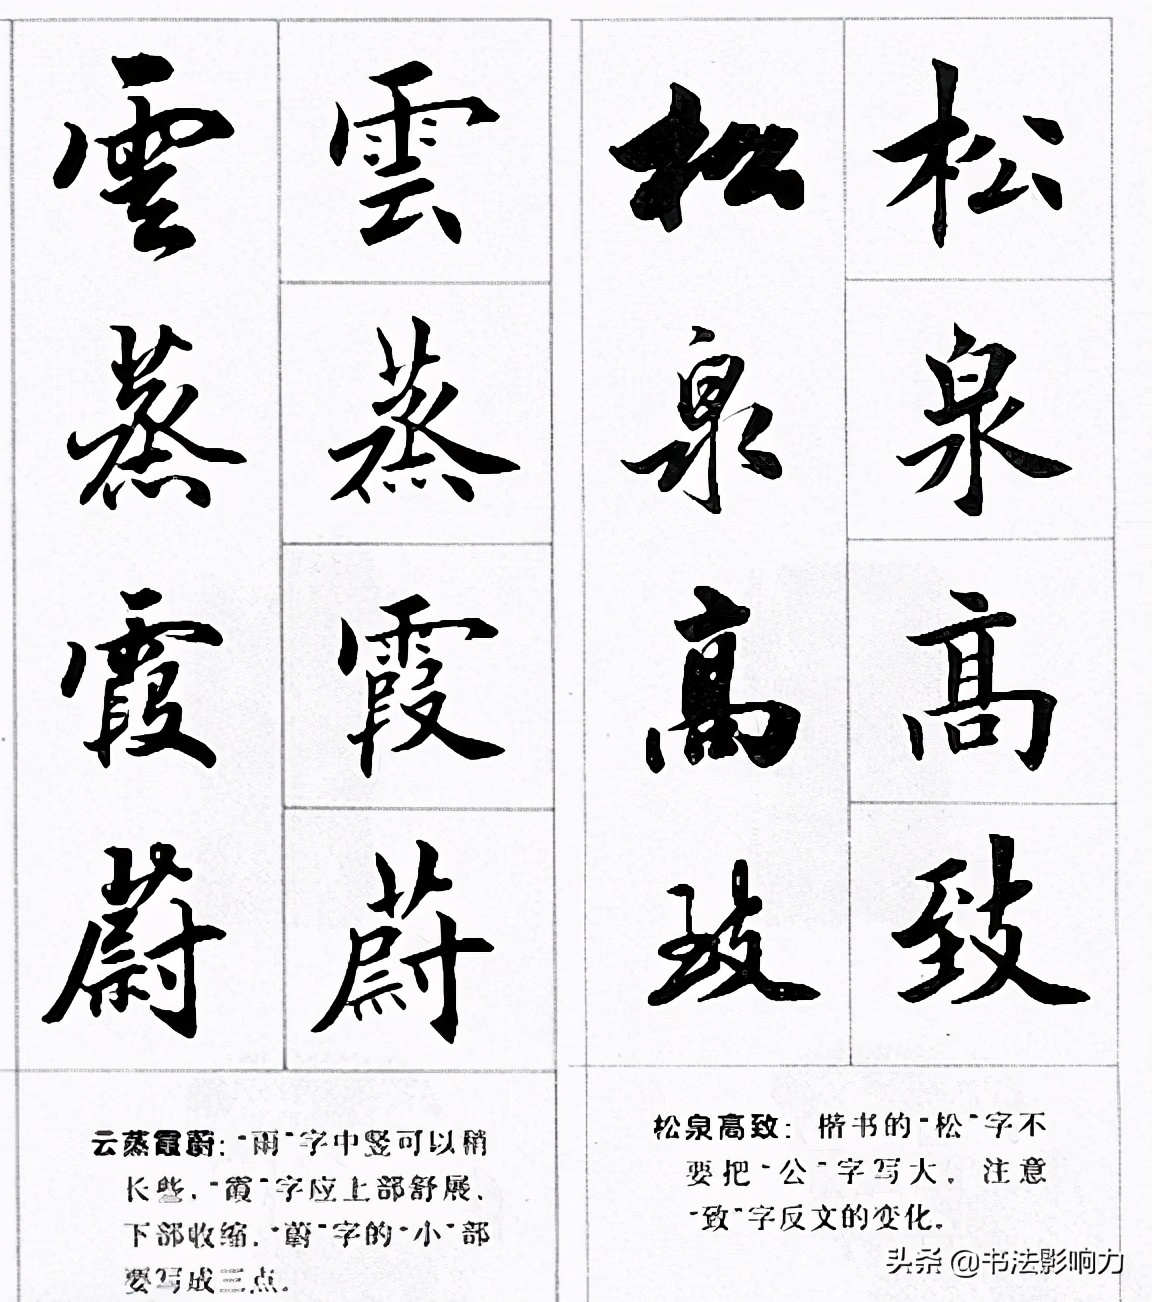 松泉高致
松泉高致
松泉高致：楷书的“松”字不
要把“公”字写大。注意
“致”字反文的变化。
雲蒸霞蔚
雲蒸霞蔚
云蒸霞蔚：“雨”字中竖可以稍
长些，“霞”字应上部舒展，
下部收缩，“蔚”字的“小”部
要写成三点。
头条 @书法影响力